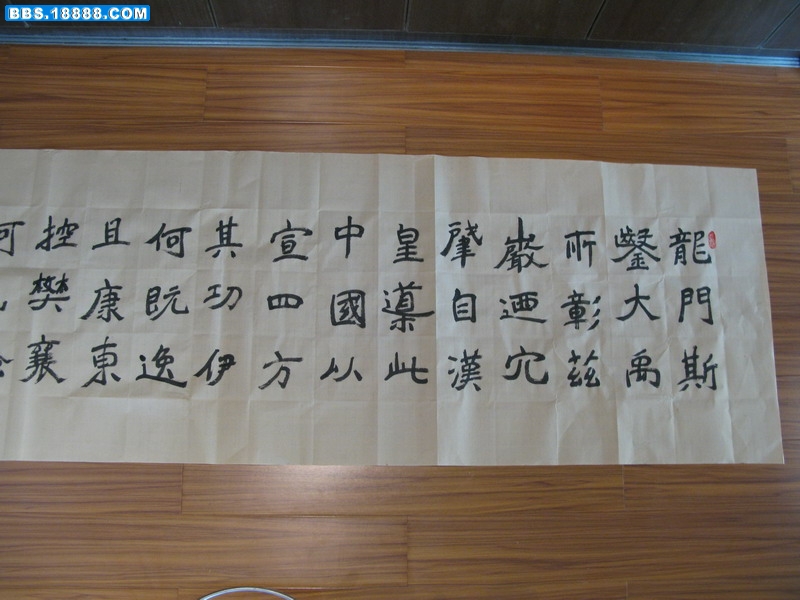 BBS.18888.COM
龍門斯
鑿大禹
所彰茲
巖迺穴
肇自漢
皇導此
中國以
宣四方
其功伊
何既逸
且康東
控樊襄